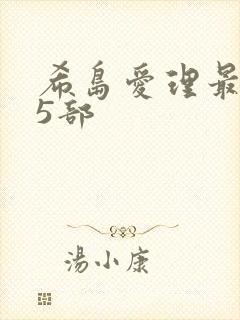 希島愛理最
5部
湯小康